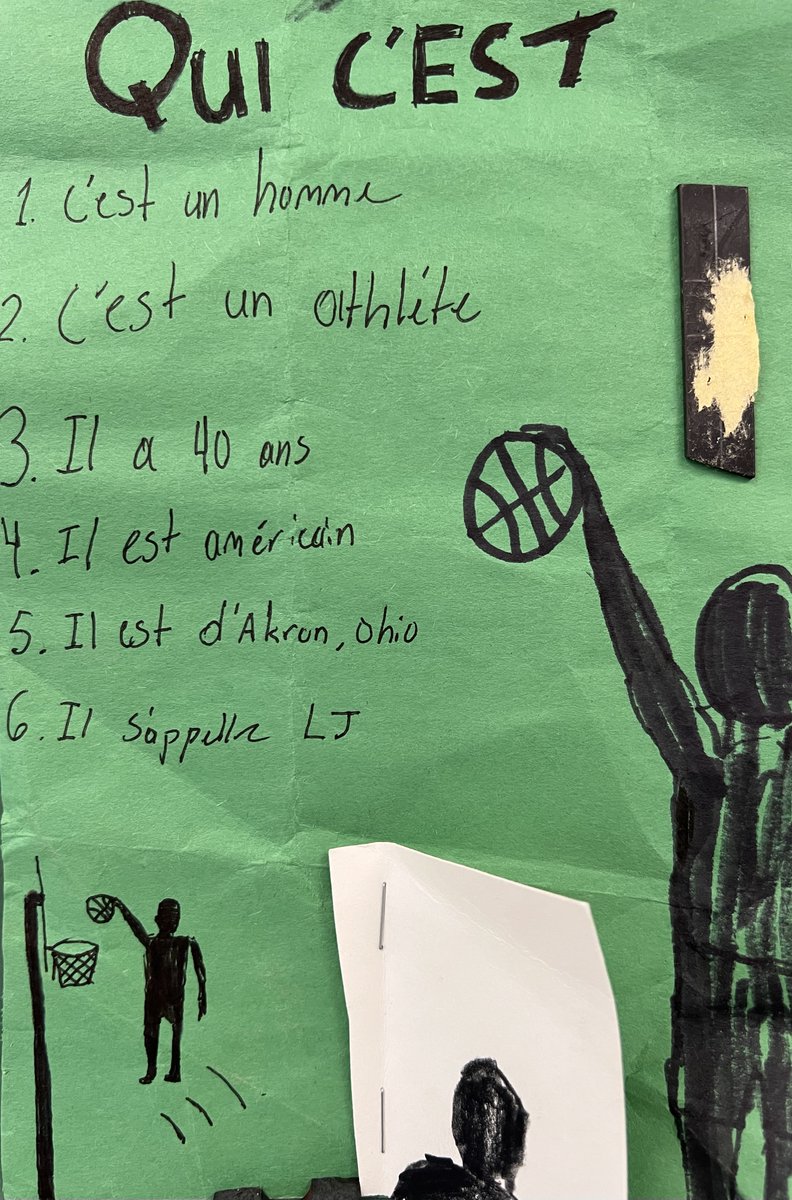 QUI C'EST
1. C'est un homme
2. C'est un athléte
3. Il a 40 ans
4. Il est américain
5. Il est d'Akron, Ohio
6. Il s'appelle LJ